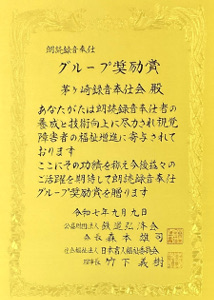 朗読録音奉仕
グループ奨励賞
茅ヶ崎録音奉仕会 殿
あなたがたは朗読録音奉仕者の
養成と技術向上に尽力され視覚
障害者の福祉増進に寄与されて
おります
ここにその功績を称え今後益々の
ご活躍を期待して朗読録音奉仕
グループ奨励賞を贈ります
令和七年九月九日
公益財団法人 鉄道弘済会
会長 森本雄司
社会福祉法人 日本盲人福祉委員会
理事長 竹下義樹